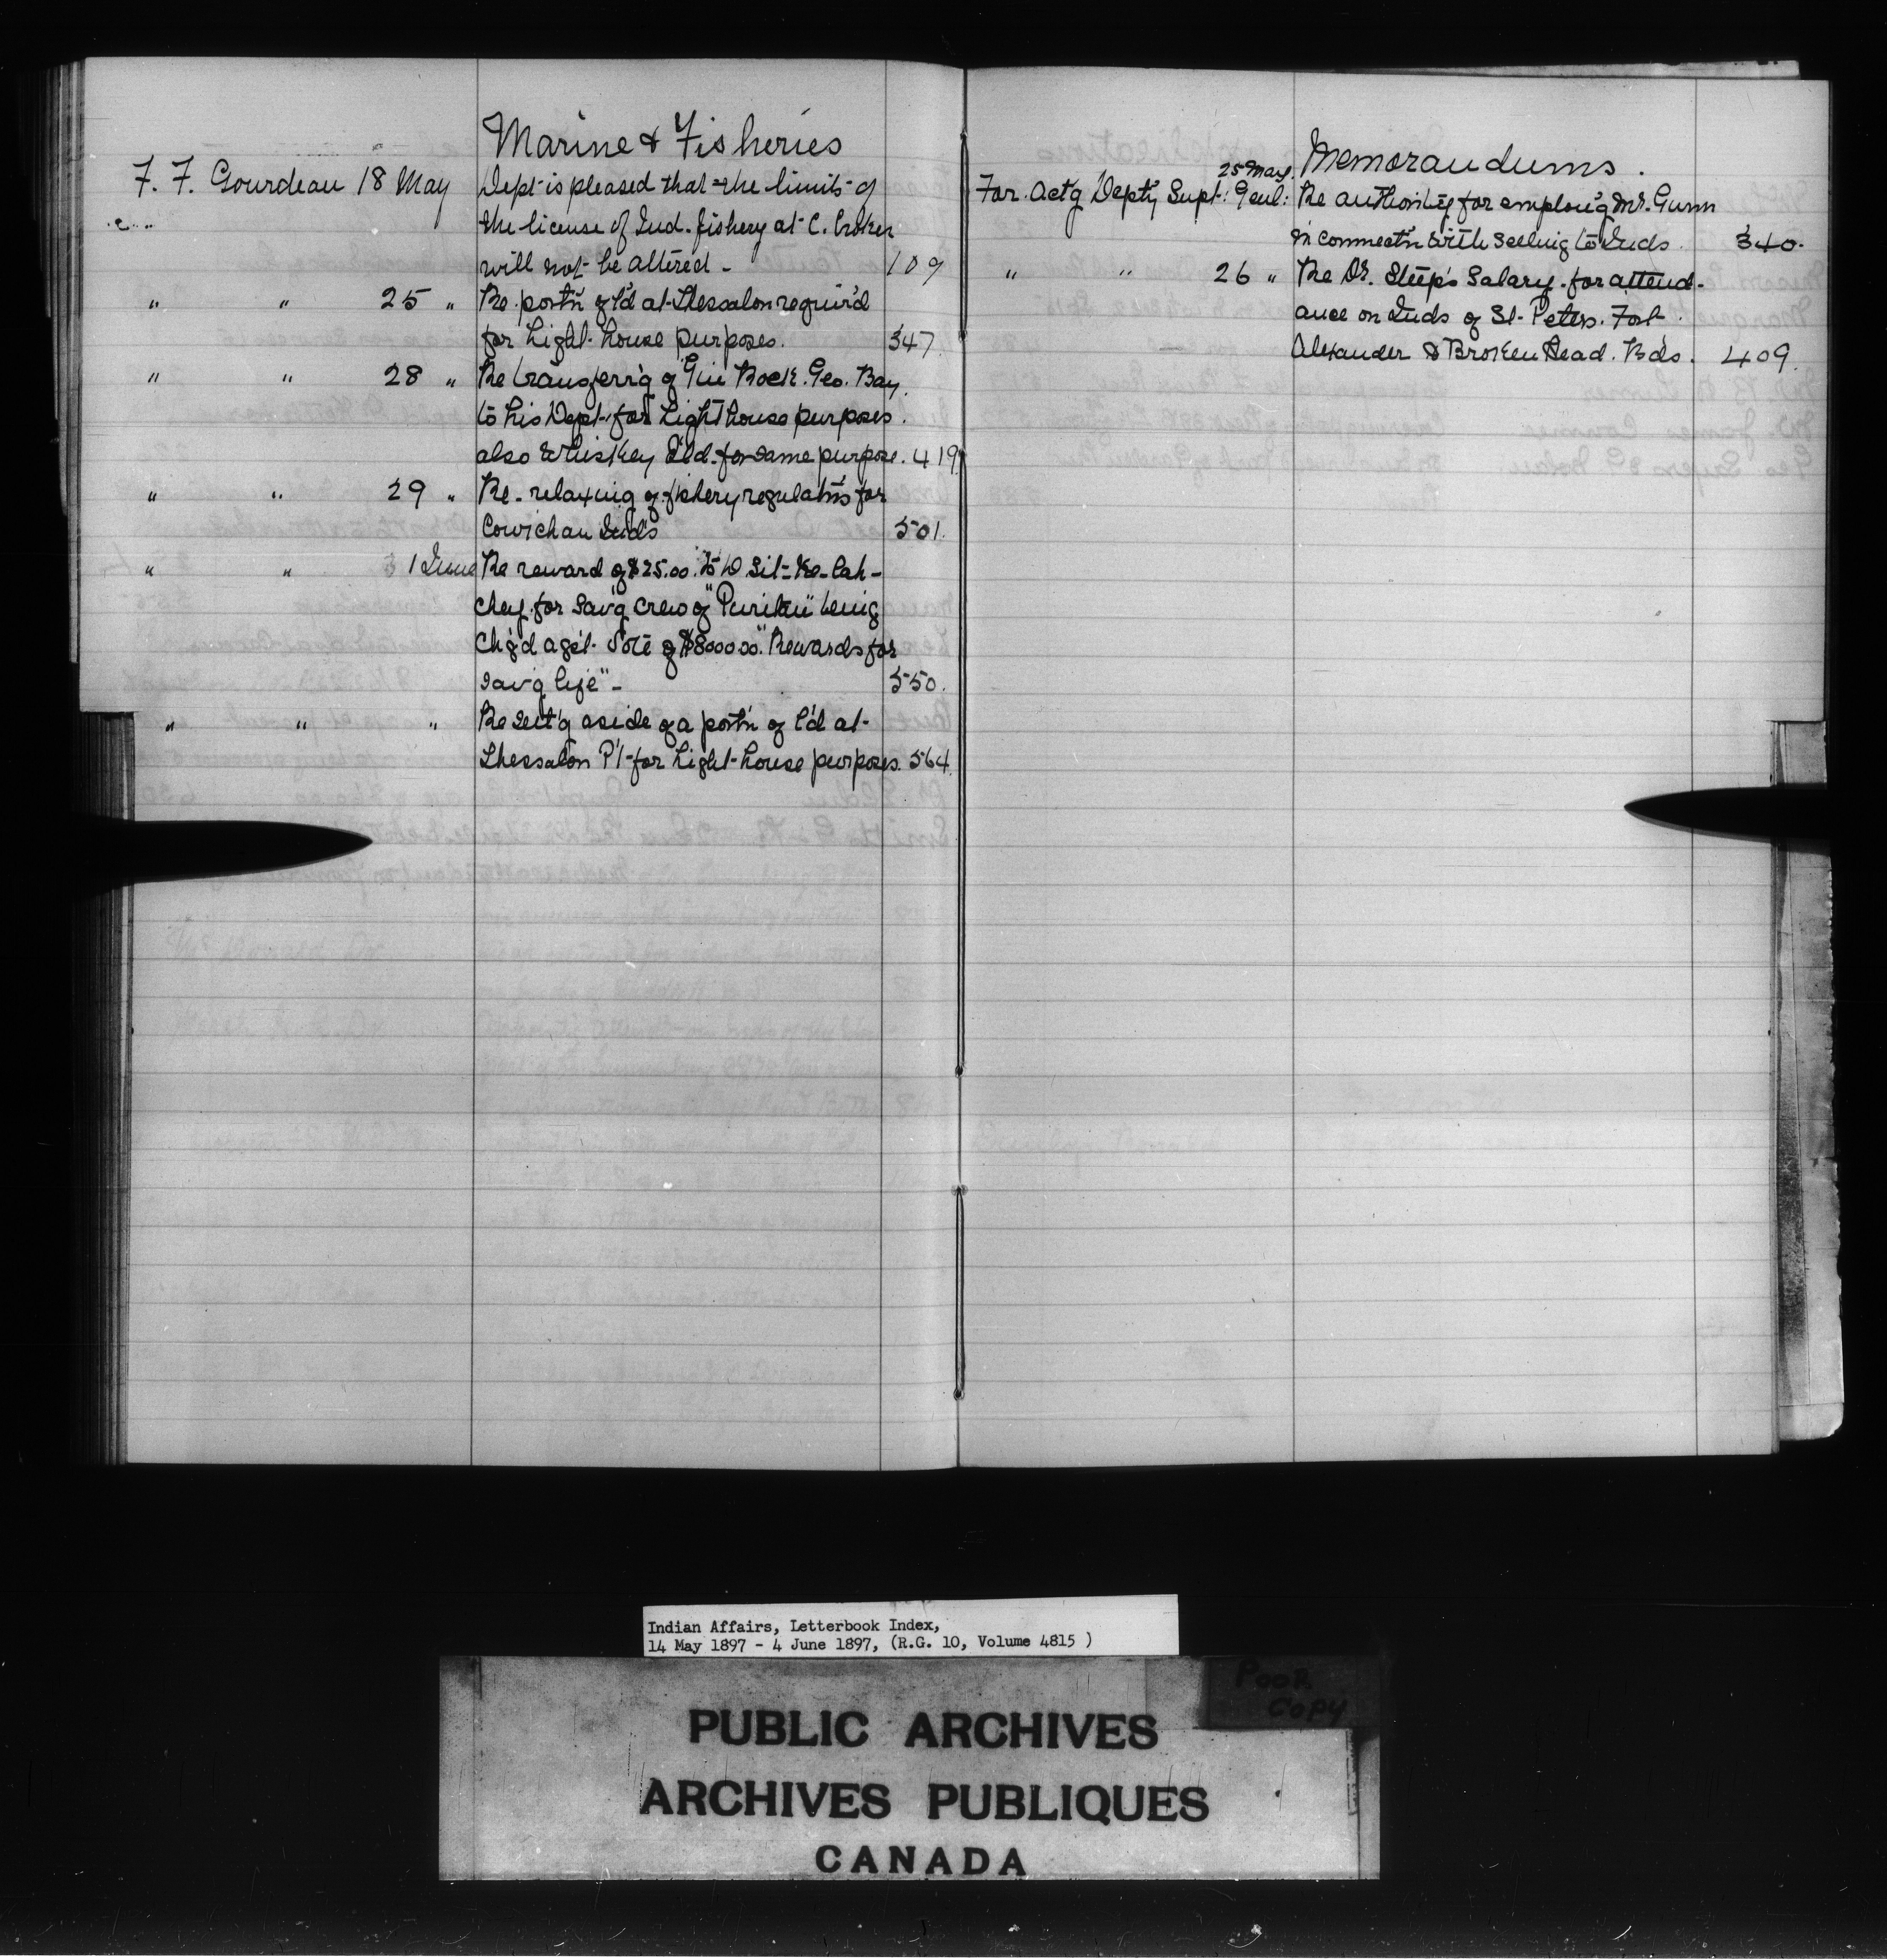 Marine & Fisheries
F. F. Gourdeau 18 May Dept is pleased that the limits of
the license of Ind. fishery at C. Croker
will not be altered - 109
" " 25 " Re portn of l'd at Thessalon requir'd
for Light-house purposes. 347
" " 28 " Re transferr'g of Gin Rock. Geo. Bay.
to his Dept. for Lighthouse purposes.
also Whiskey I'ld. for same purpose. 419
" " 29 " Re- relaxing of fishery regulatns for
Cowichan Inds 501.
" " 1 June Re reward of $25.00. to W. Sit-Ke-Cah-
chey. for sav'g crew of "Puritan" being
Ch'g'd ag'st. Vote of $8000.00. "Rewards for
sav'g life" - 550.
" " " Re sett'g aside of a portn of l'd at
Thessalon P't for Light-house purposes. 564.
Memorandums.
25 May.
For. Act'g Depty Supt: Genl: Re authority for employ'g Mr. Gunn
in connectn with selling to Inds. 340.
" " 26 " Re Dr. Steep's Salary. for attend-
ance on Inds of St. Peters. Fort.
Alexander & Broken Head. Bds. 409.
Indian Affairs, Letterbook Index,
14 May 1897 - 4 June 1897, (R.G. 10, Volume 4815 )
POOR
COPY
PUBLIC ARCHIVES
ARCHIVES PUBLIQUES
CANADA